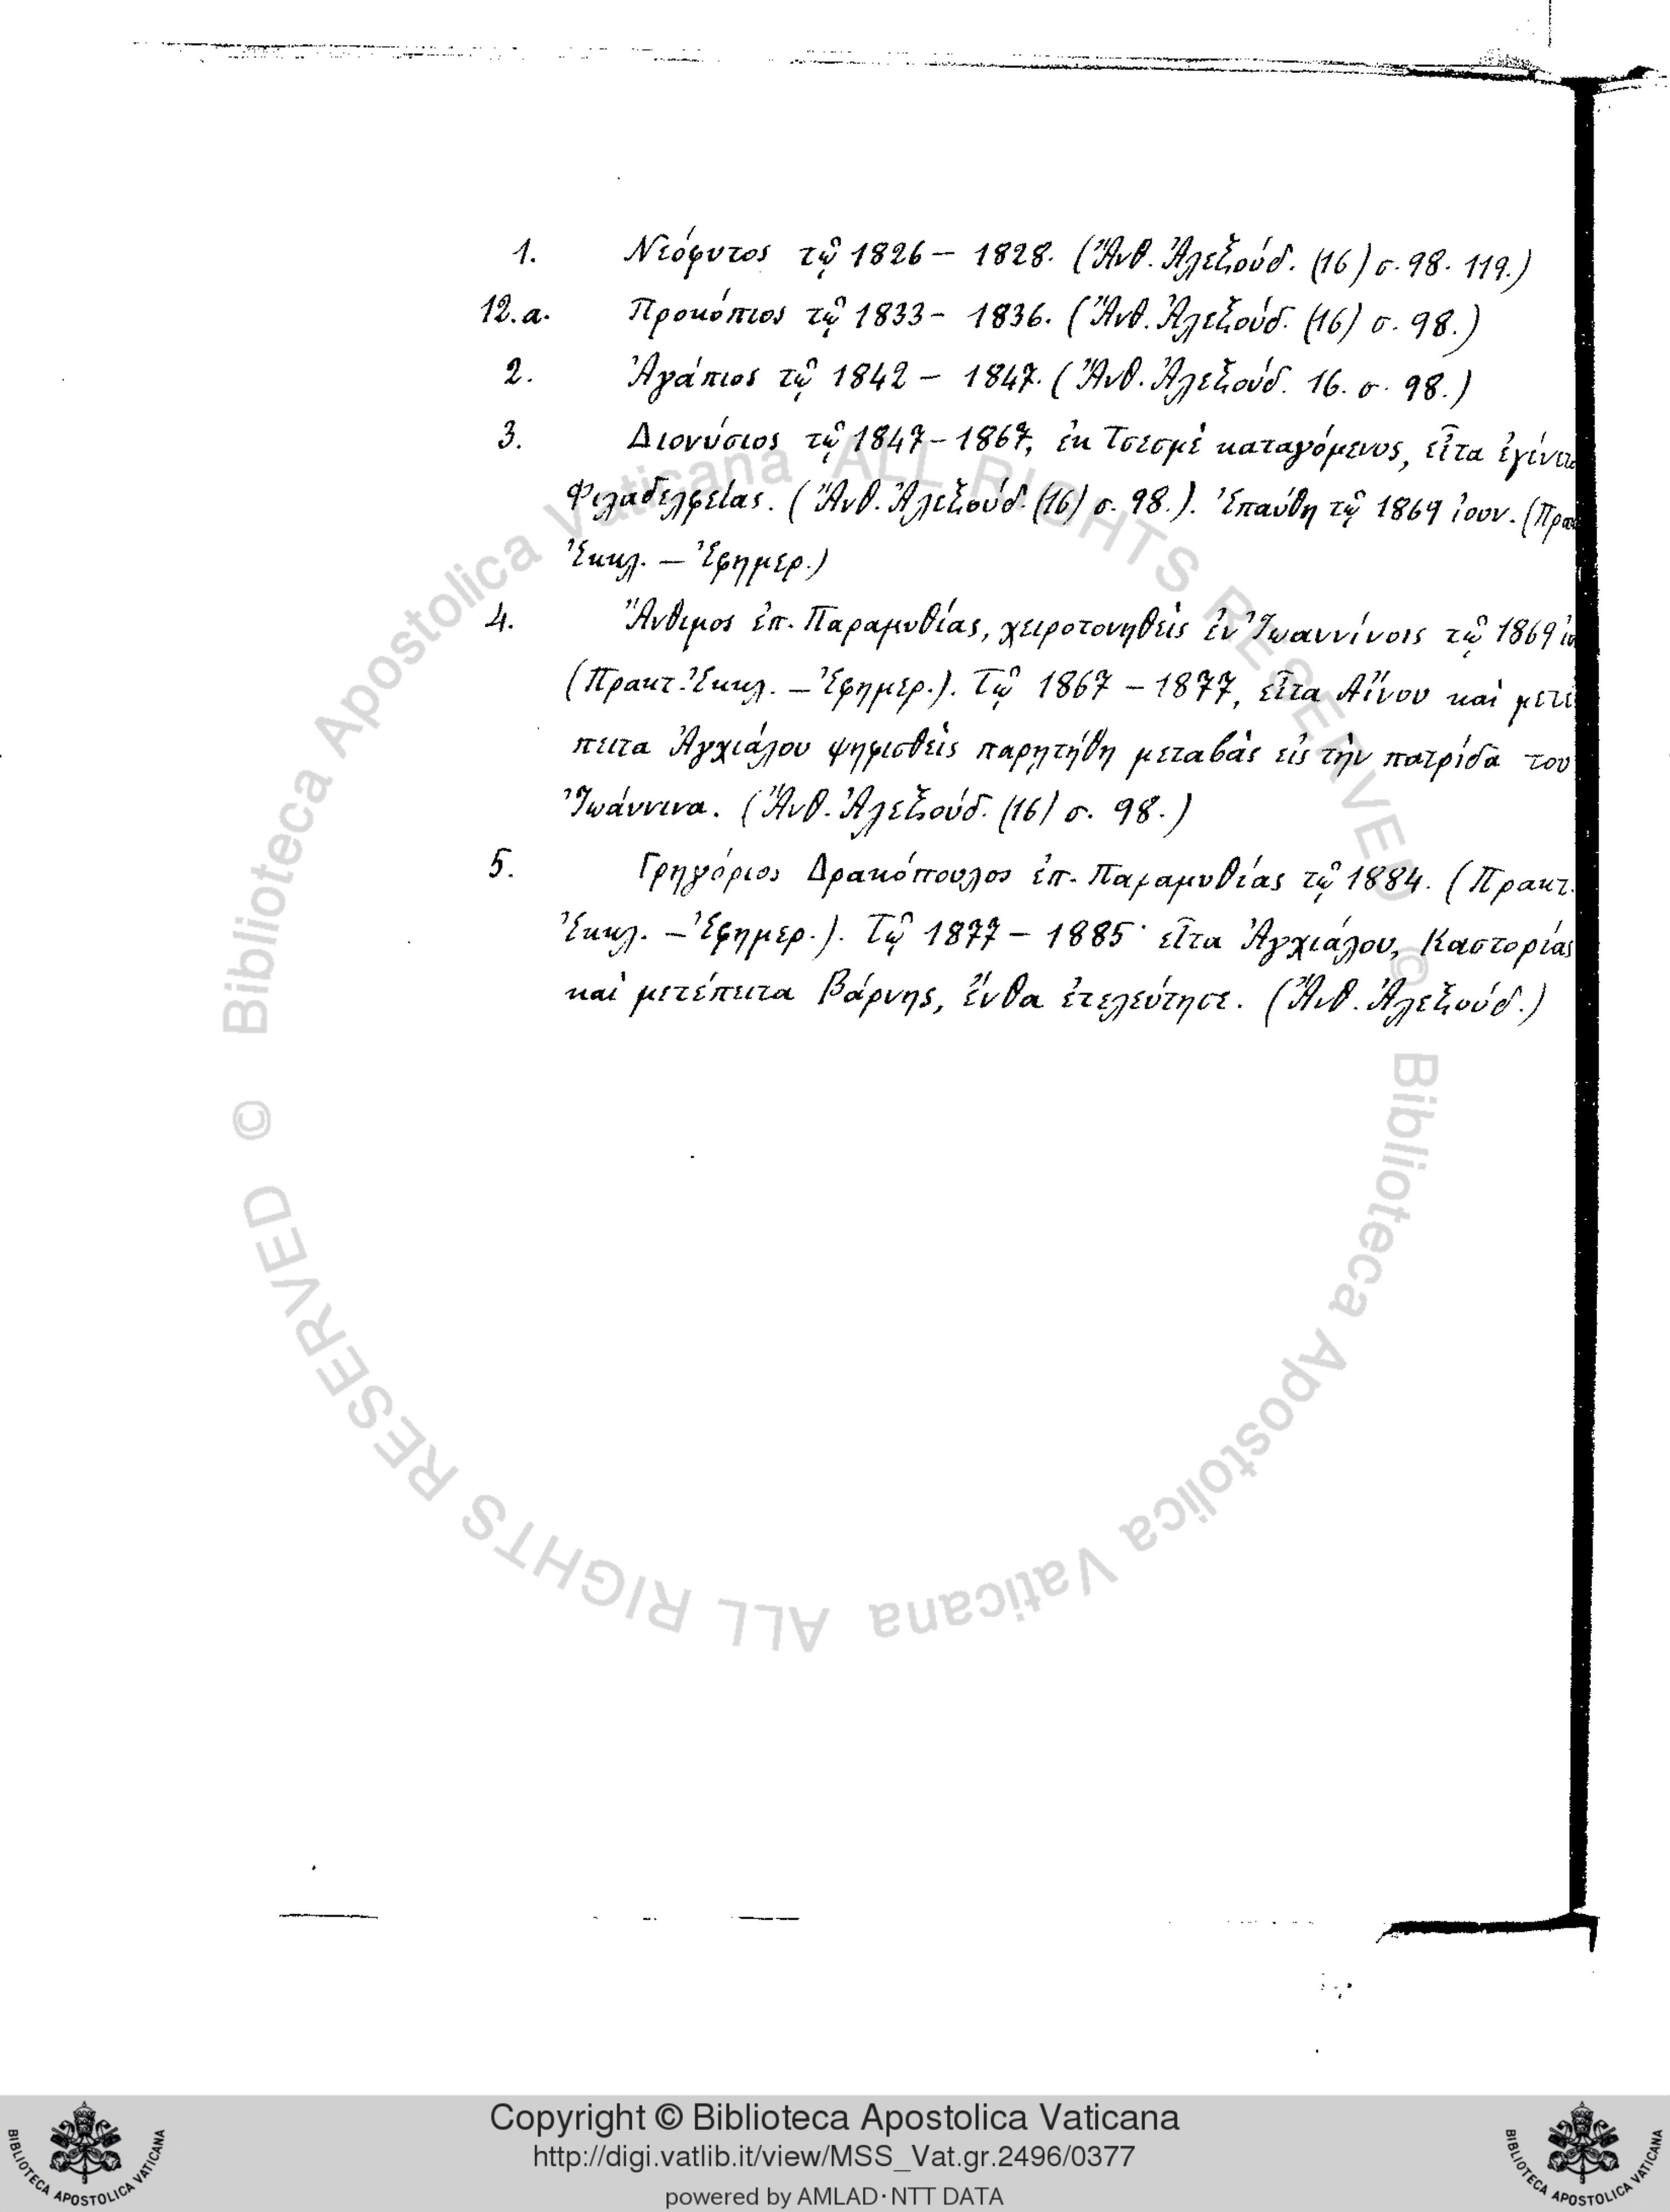 1. Νεόφυτος τῷ 1826 – 1828. (Ἄνθ. Ἀλεξούδ. (16) σ. 98. 119.)
12.α. Προκόπιος τῷ 1833 – 1836. (Ἄνθ. Ἀλεξούδ. (16) σ. 98.)
2. Ἀγάπιος τῷ 1842 – 1847. (Ἄνθ. Ἀλεξούδ. 16. σ. 98.)
3. Διονύσιος τῷ 1847 – 1867, ἐκ Τσεσμὲ καταγόμενος, εἶτα ἐγένετο
Φιλαδελφείας. (Ἄνθ. Ἀλεξούδ. (16) σ. 98.). Ἐπαύθη τῷ 1869 ἰουν. (Πρακ
Ἐκκλ. – Ἐφημερ.)
4. Ἄνθιμος ἐπ. Παραμυθίας, χειροτονηθεὶς ἐν Ἰωαννίνοις τῷ 1869
(Πρακτ. Ἐκκλ. – Ἐφημερ.). Τῷ 1867 – 1877, εἶτα Αἴνου καὶ μετέ
πειτα Ἀγχιάλου ψηφισθεὶς παρῃτήθη μεταβὰς εἰς τὴν πατρίδα του
Ἰωάννινα. (Ἄνθ. Ἀλεξούδ. (16) σ. 98.)
5. Γρηγόριος Δρακόπουλος ἐπ. Παραμυθίας τῷ 1884. (Πρακτ.
Ἐκκλ. – Ἐφημερ.). Τῷ 1877 – 1885· εἶτα Ἀγχιάλου, Καστορίας
καὶ μετέπειτα Βάρνης, ἔνθα ἐτελεύτησε. (Ἄνθ. Ἀλεξούδ.)
© Biblioteca Apostolica Vaticana ALL RIGHTS RESERVED
© Biblioteca Apostolica Vaticana ALL RIGHTS RESERVED
Copyright © Biblioteca Apostolica Vaticana
http://digi.vatlib.it/view/MSS_Vat.gr.2496/0377
powered by AMLAD·NTT DATA
BIBLIOTECA APOSTOLICA VATICANA
BIBLIOTECA APOSTOLICA VATICANA